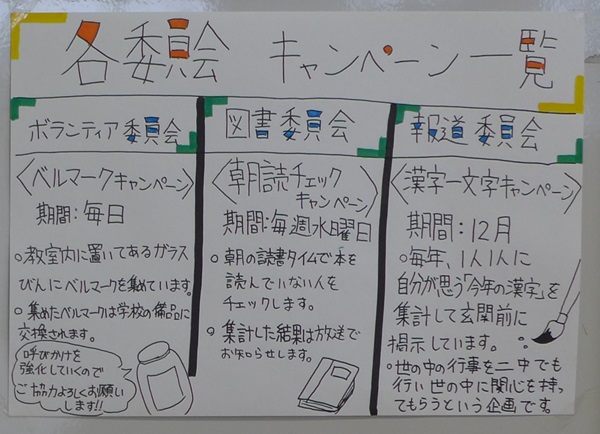 各委員会 キャンペーン一覧
ボランティア委員会
〈ベルマークキャンペーン〉
期間:毎日
○教室内に置いてあるガラス
びんにベルマークを集めています。
○集めたベルマークは学校の備品に
交換されます。
呼びかけを
強化していくので
ご協力よろしくお願い
します!!
図書委員会
〈朝読チェック
キャンペーン〉
期間:毎週水曜日
○朝の読書タイムで本を
読んでいない人を
チェックします。
○集計した結果は放送で
お知らせします。
報道委員会
〈漢字一文字キャンペーン〉
期間:12月
○毎年、1人1人に
自分が思う「今年の漢字」を
集計して玄関前に
掲示しています。
○世の中の行事を二中でも
行い世の中に関心を持っ
てもらうという企画です。